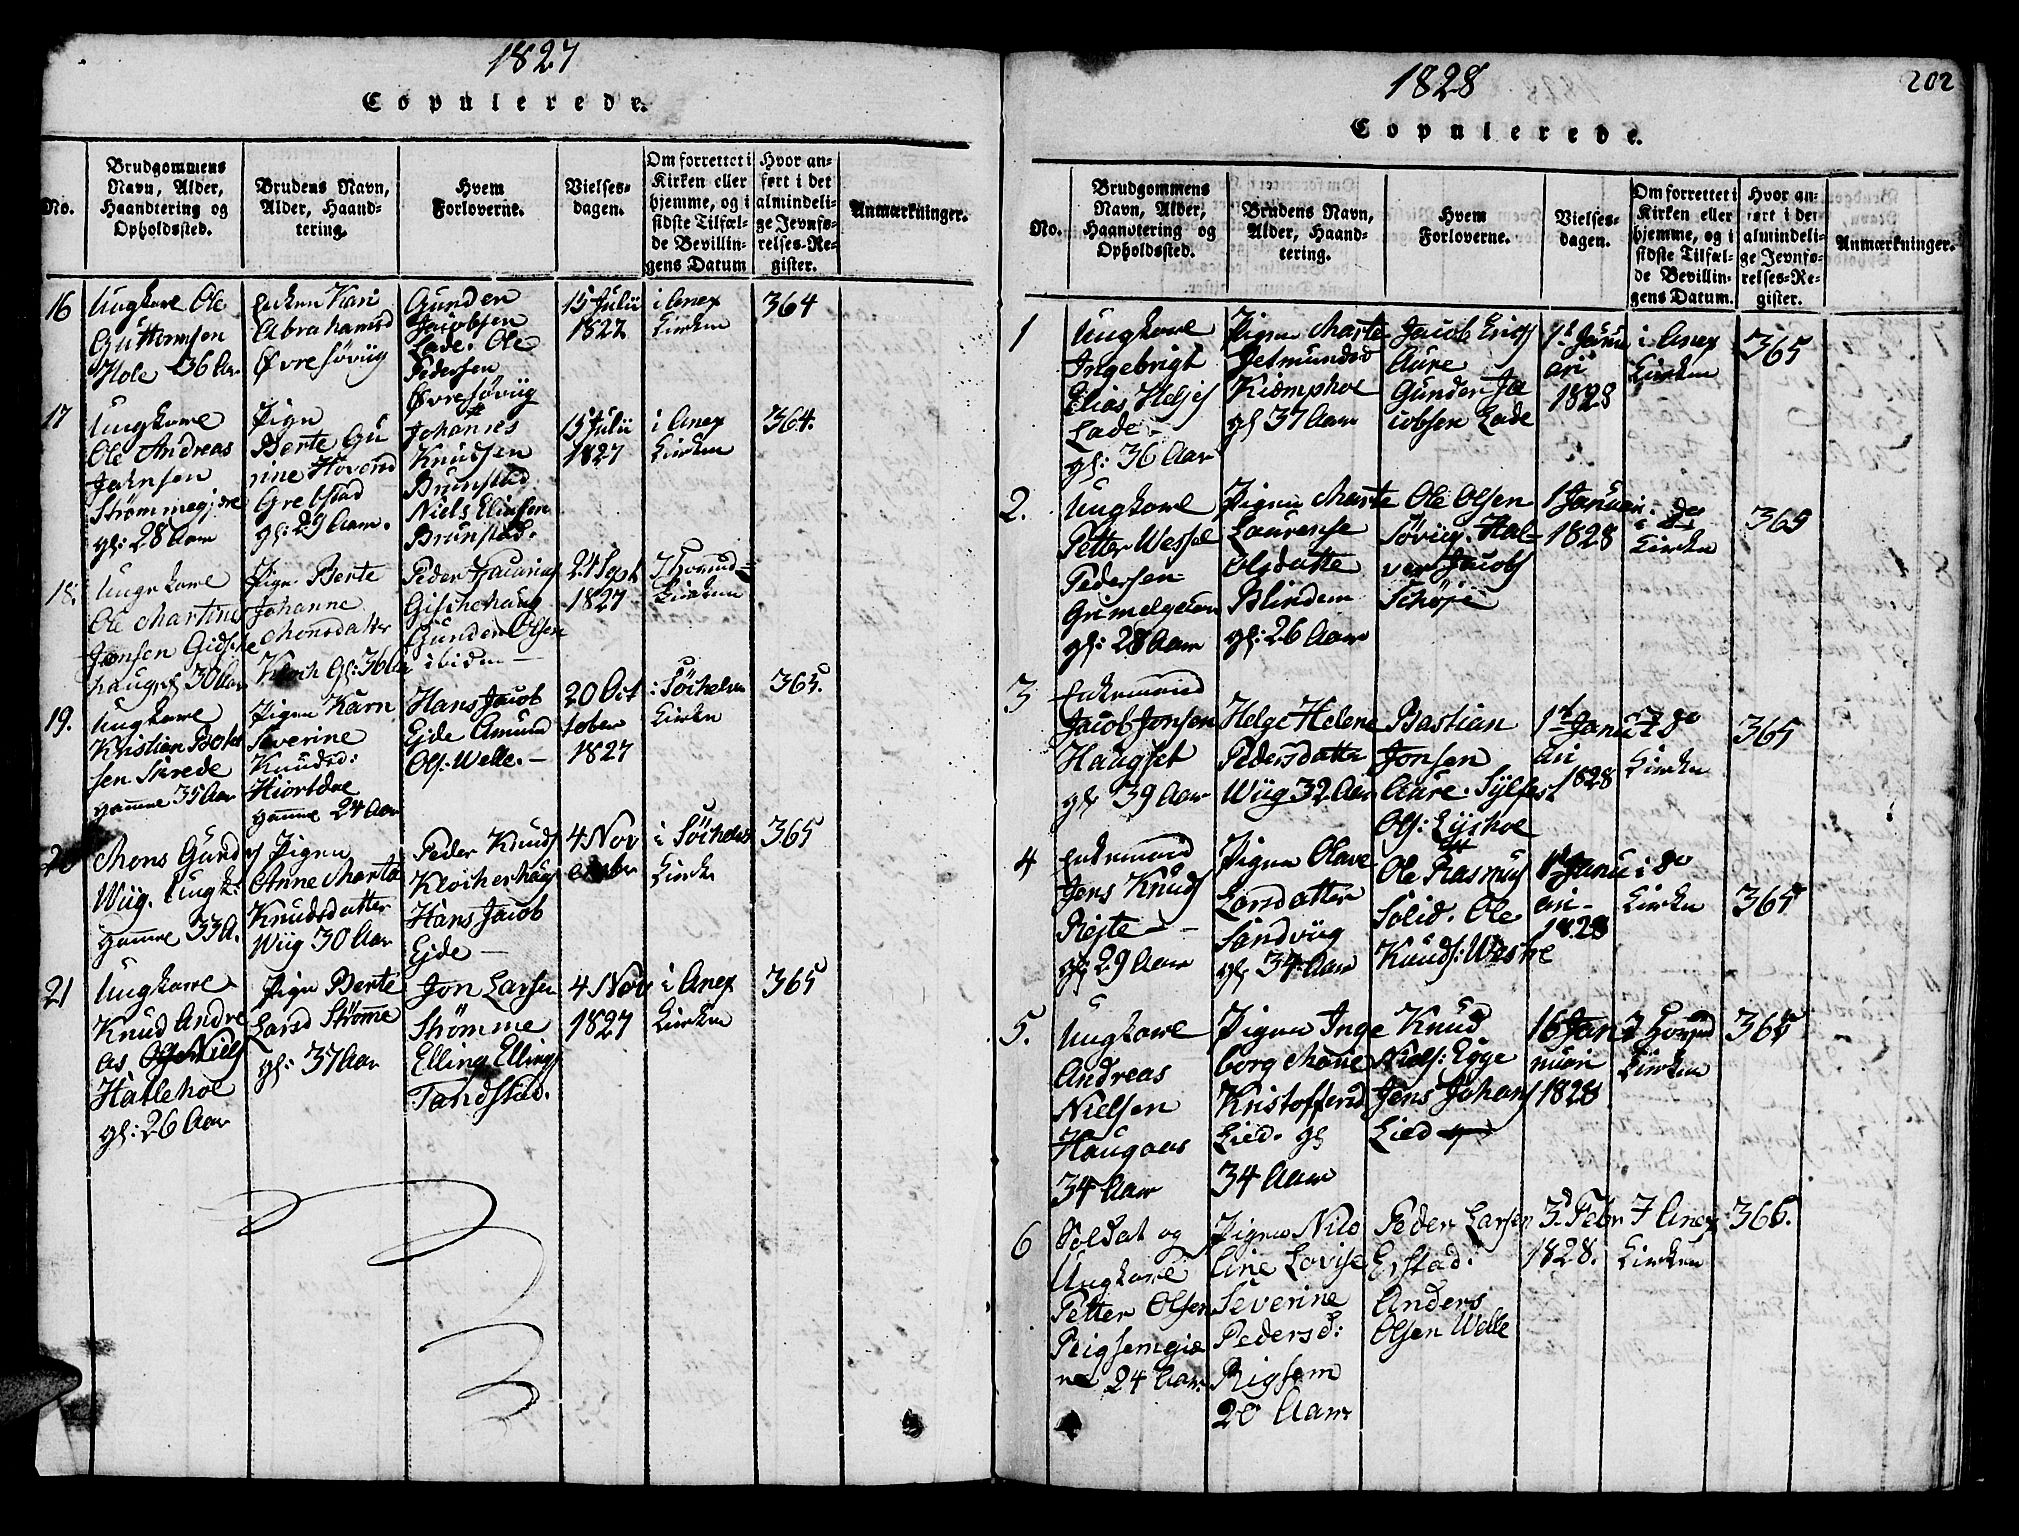 1827
Copulerede.
No.
Brudgommens
Navn, Alder,
Haandtering og
Opholdssted.
Brudens Navn,
Alder, Haand-
tering.
Hvem
Forloverne.
Vielses-
dagen.
Om forrettet i
Kirken eller
hjemme, og i
sidste Tilfæl-
de Bevillin-
gens Datum
Hvor an-
ført i det
almindeli-
ge Jevnfø-
relses-Re-
gister.
Anmærkninger.
16
Ungkarl Ole
Guttormsen
Hole 36 Aar
Enken Kari
Abrahamsd
Øvre Søviig
Gunden
Jacobsen
Lade. Ole
Pedersen
Øvre Søviig
15 Julii
1827
i Anex
Kirken
364
17
Ungkarl
Ole Andreas
Jahnsen
Strømmegjære
gl: 28 Aar
Pigen
Berte Gu
rine Hoversd
Grebstad
gl: 29 Aar.
Johannes
Knudsen
Brunstad
Niels Eliasen
Brunstad.
15 Julii
1827
i Anex
Kirken
364.
18.
Ungkarl
Ole Martinus
Jonsen Gidsche
haug gl 30 Aar
Pigen Berte
Johanne
Monsdatter
Kloch Gl: 36 Aar
Peder Zacarias
Gischehaug
Gunder Olsen
ibidem —
24 Sept
1827
Kirken
19.
Ungkarl
Kristian Peter
sen Surede
gamme 35 Aar
Pigen Karn
Severine
Knudsd:
Hiortdae
gamme 24 Aar
Hans Jacob
Eide Amund
Ols: Welle. —
20 Oct
tober
1827
i Søcholm
Kirke
365.
20
Mons Gunds
Wiig. Ungk.
gamme 33 A.
Pigen
Anne Marta
Knudsdatter
Wiig 30 Aar
Peder Knuds
Klocherhaug
Hans Jacob
Eide —
4 Nov
ember
i Søcholm
Kirke
365
21
Ungkarl
Knud Andre
as Niels
Hatlehoe
gl: 26 Aar
Pigen Berte
Larsd Strømme
gl: 37 Aar
Jon Larsen
Strømme
Elling Ellings
Tandstad.
4 Nov
1827
i Anex
Kirken
365
1828
202
Copulerede.
No.
Brudgommens
Navn, Alder,
Haandtering og
Opholdssted.
Brudens Navn,
Alder, Haand-
tering.
Hvem
Forloverne.
Vielses-
dagen.
Om forrettet i
Kirken eller
hjemme, og i
sidste Tilfæl-
de Bevillin-
gens Datum.
Hvor an-
ført i det
almindeli-
ge Jevnfø-
relses-Re-
gister.
Anmærkninger.
1
Ungkarl
Ingebrigt
Elias Helses
Lade —
gl: 36 Aar
Pigen Marte
Jetmundsd
Kiemphoe
gl 37 Aar
Jacob Erichs
Aure
Gunder Ja
cobsen Lade
1t Janu
ari
1828
i Anex
Kirken
365
2.
Ungkarl
Petter Wessel
Pedersen
Grimelgeien
gl: 28 Aar
Pigen Marte
Lauresse
Olsdatte
Blindem
gl: 26 Aar
Ole Olsen
Søviig Hal-
ver Jacobs
Schøje
1 Januari
1828
i do
Kirken
365
3
Enkemand
Jacob Jonsen
Haugset
gl 39 Aar
Helge Helene
Pedersdatter
Wiig 32 Aar
Bastian
Jonsen
Aure. Sylfest
Ols: Lyshoe
1t Janu
ari
1828
i do
Kirken
365
4
Enkemand
Jens Knuds
Riejte —
gl 29 Aar
Pigen Olave
Larsdatter
Sandviig
gl 34 Aar
Ole Rasmus
Solid. Ole
Knuds: Westre
1t Janu
ari—
1828
i do
Kirken
365
5.
Ungkarl
Andreas
Nielsen
Haugaas
34 Aar
Pigen Inge
borg Marie
Kristoffersd
Lied. gl
34 Aar
Knud
Niels: Egge
Jens Johans
Lied
16 Jan
nuari
1828
I Hovud
Kirken
365
6
Soldat og
Ungkarl
Petter Olsen
Rigsemgiæ
re 24 Aar.
Pigen Nico
line Lovise
Severine
Pedersd:
Rigsem
20 Aar
Peder Larsen
Erstad:
Anders
Olsen Welle
3 Febr
1828.
I Anex
Kirken
365.